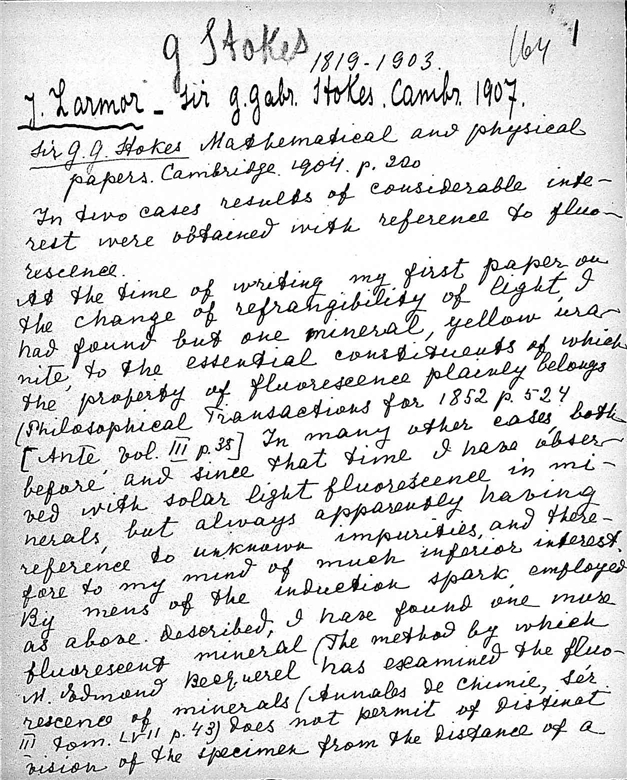 G Stokes 1819-1903. 164 1
J. Larmor - Sir G. Gabr. Stokes. Cambr. 1907.
Sir G. G. Stokes Mathematical and physical
papers. Cambridge. 1904. p. 220
In two cases results of considerable inte-
rest were obtained with reference to fluo-
rescence.
At the time of writing my first paper on
the change of refrangibility of light, I
had found but one mineral, yellow ura-
nite, to the essential constituents of which
the property of fluorescence plainly belongs
(Philosophical Transactions for 1852 p. 524
[Ante, vol. III p. 38] In many other cases, both
before and since that time I have obser-
ved with solar light fluorescence in mi-
nerals, but always apparently having
reference to unknown impurities, and there-
fore to my mind of much inferior interest.
By mens of the induction spark, employed
as above described, I have found one more
fluorescent mineral (The method by which
M. Edmond Becquerel has examined the fluo-
rescence of minerals (Annales de Chimie, sér.
III tom. LVII p. 43) does not permit of distinct
vision of the specimen from the distance of a